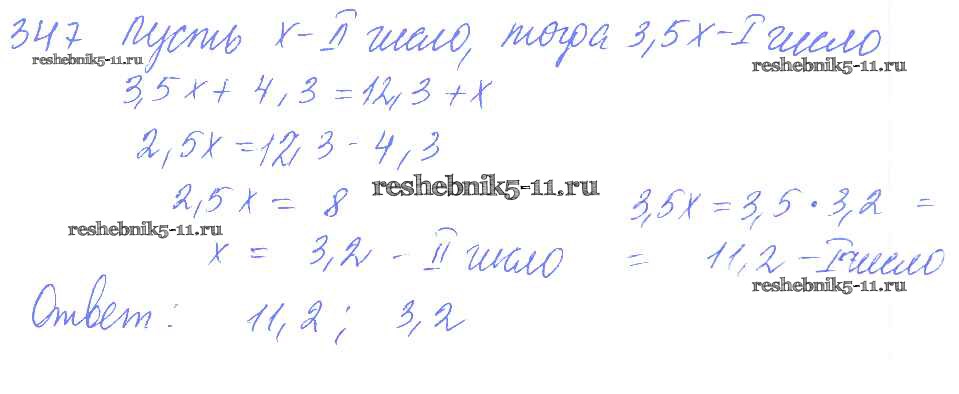 347 Пусть x - II число, тогда 3,5x - I число
reshebnik5-11.ru reshebnik5-11.ru
3,5x + 4,3 = 12,3 + x
2,5x = 12,3 - 4,3
2,5x = 8 reshebnik5-11.ru 3,5x = 3,5 · 3,2 =
reshebnik5-11.ru
x = 3,2 - II число = 11,2 - I число
reshebnik5-11.ru
Ответ: 11,2; 3,2